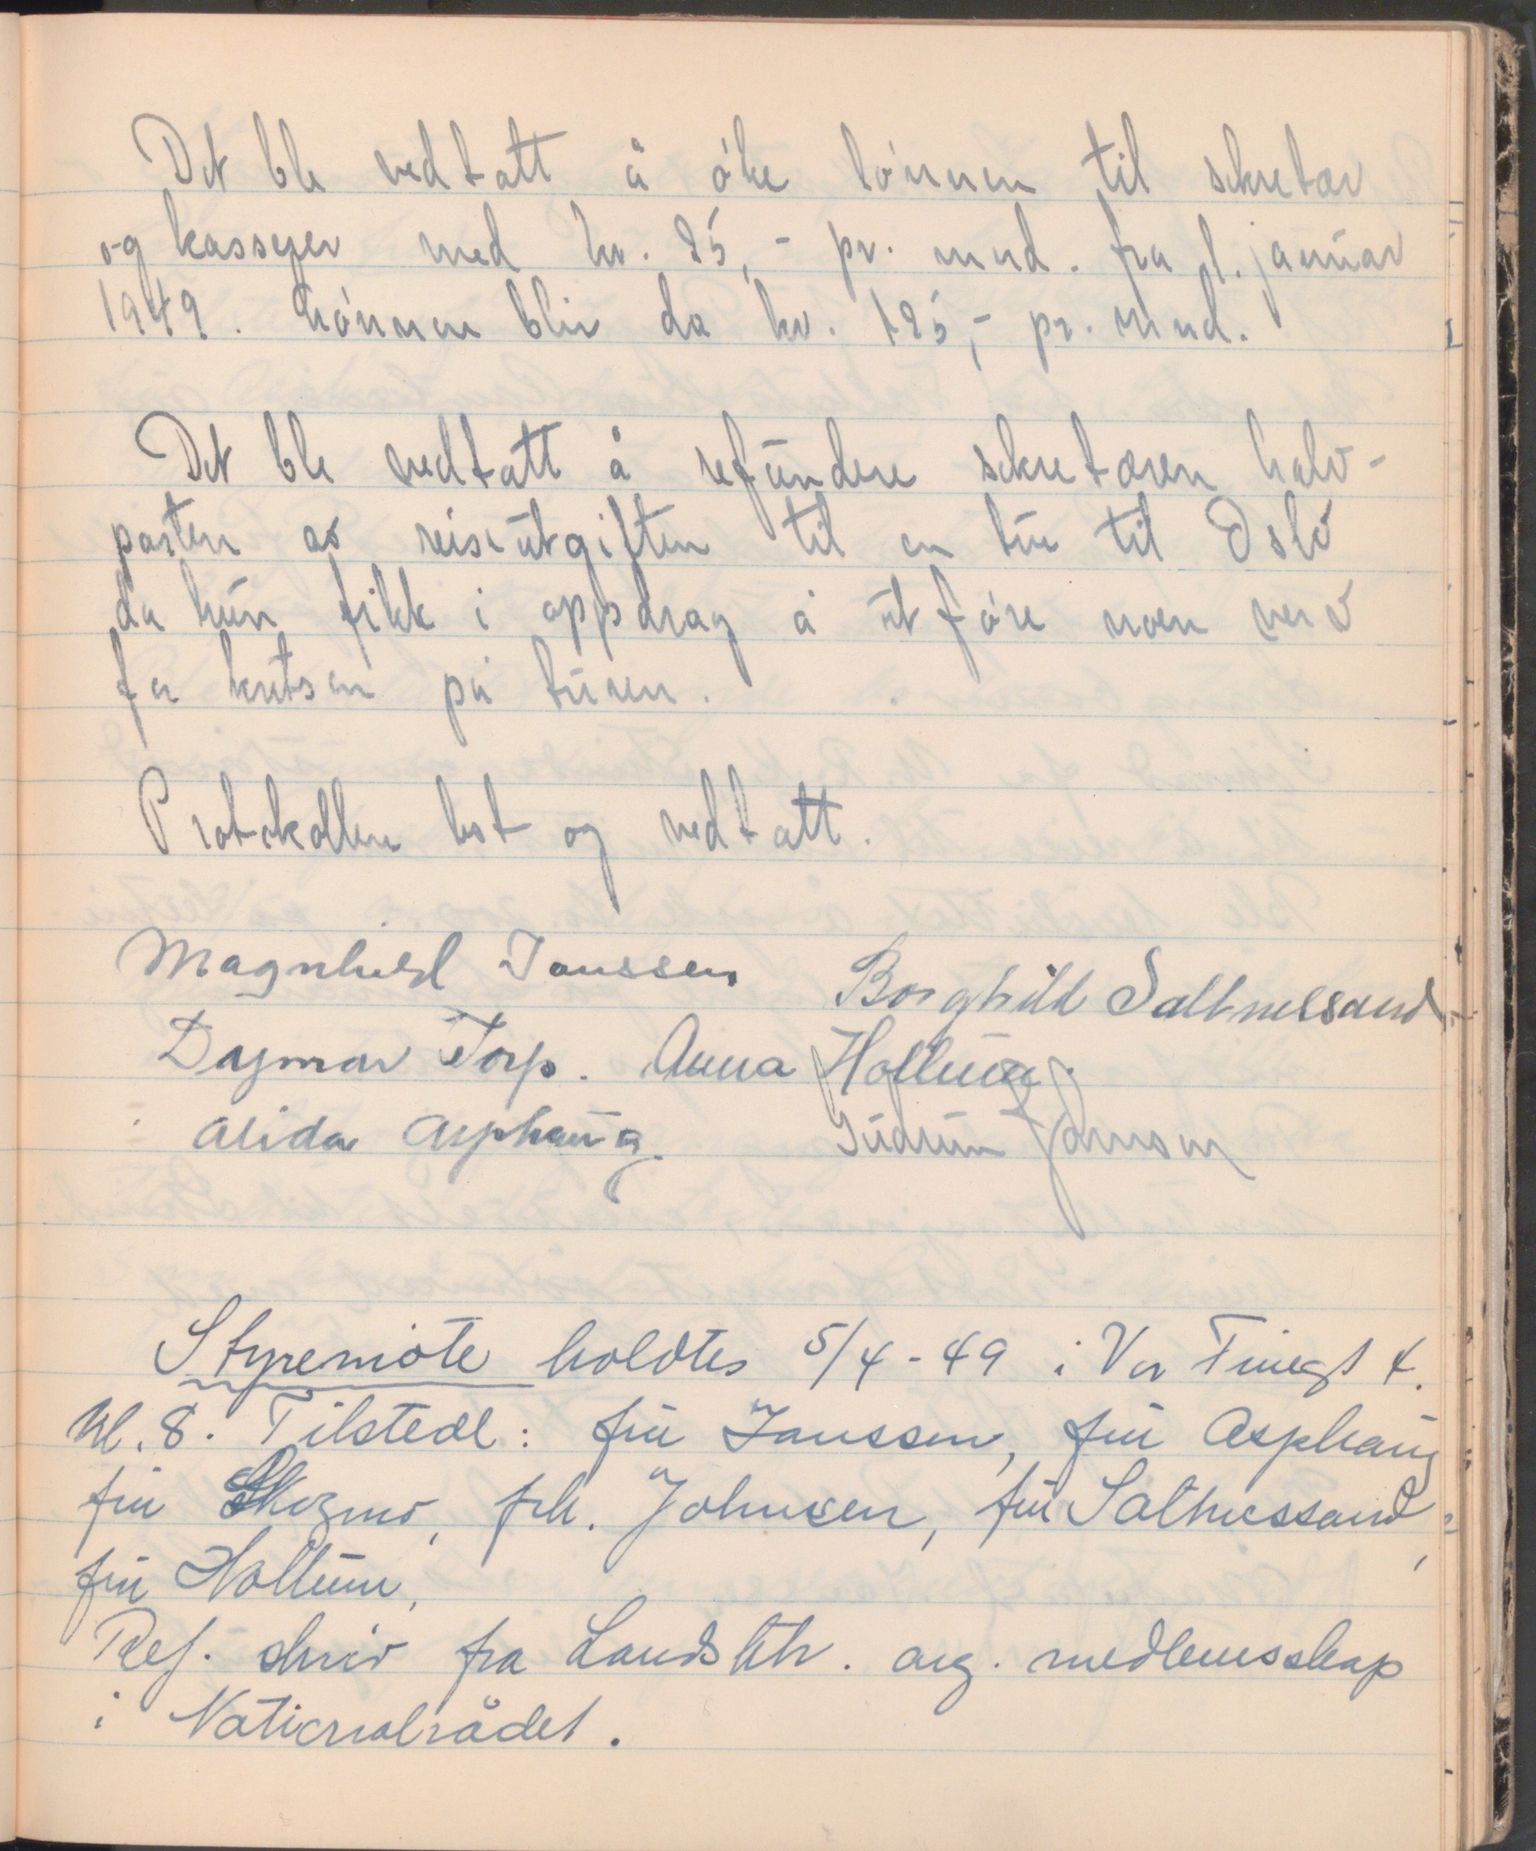 Det ble vedtatt å øke lønnen til sekretær
og kasserer med kr. 25,- pr. mnd. fra 1. januar
1949. Lønnen blir da kr. 125,- pr. mnd.
Det ble vedtatt å refundere sekretæren halv-
parten av reiseutgiften til en tur til Oslo
da hun fikk i oppdrag å utføre noen verv
for kretsen på turen.
Protokollen lest og vedtatt.
Magnhild Janssen Borghild Saltnessand
Dagmar Torp. Anna Hollum.
Alida Asphaug. Gudrun Johnsen
Styremøte holdtes 5/4-49 i Vor Fruegt 4.
kl. 8. Tilstede: fru Janssen, fru Asphaug
fru Skozmo, frk. Johnsen, fru Saltnessand,
fru Hollum,
Ref. skriv fra Landskth. ang. medlemsskap
i Nationalrådet.